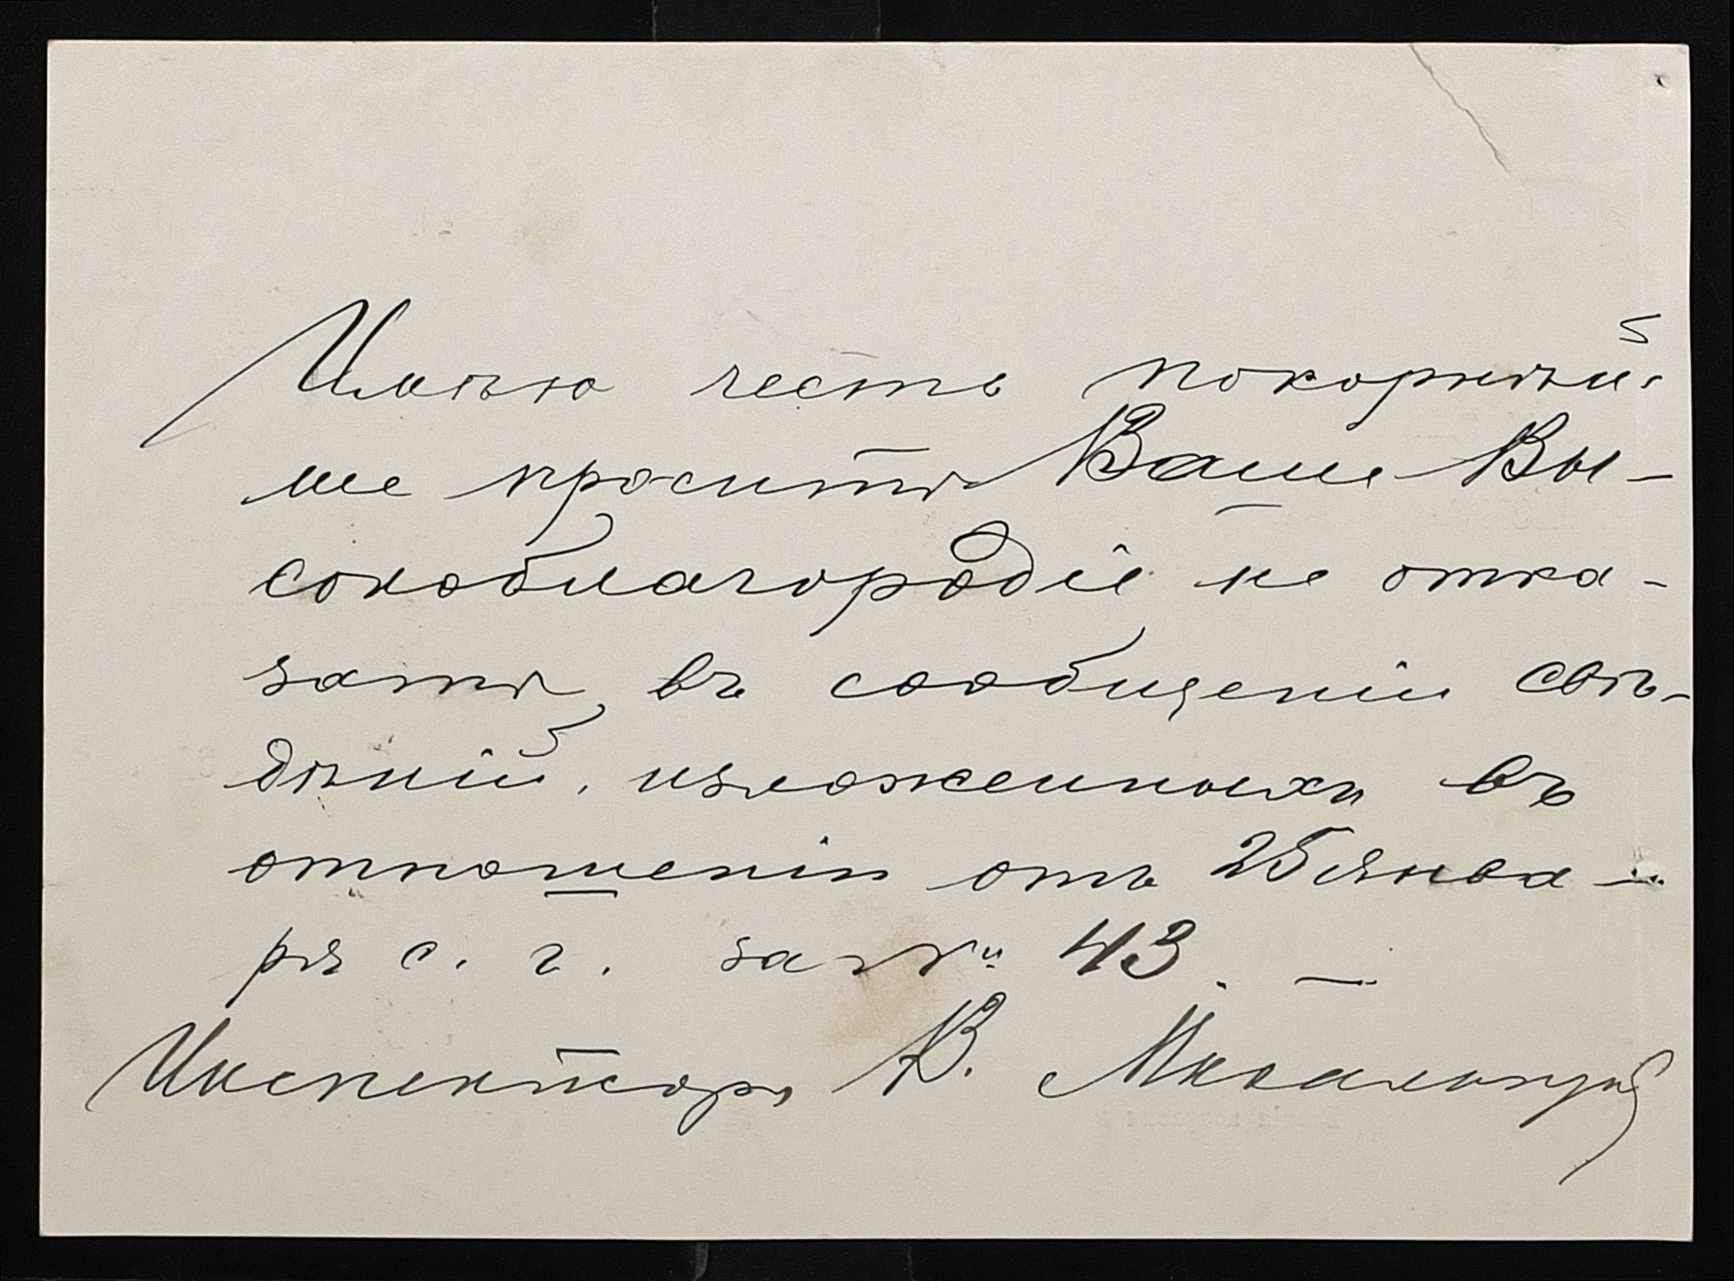 Имѣю честь покорнѣй-
ше просить Ваше Вы-
сокоблагородіе не отка-
зать въ сообщеніи свѣ-
дѣній, изложенныхъ въ
отношеніи отъ 25 янва-
ря с. г. за № 43. —
Инспекторъ В.